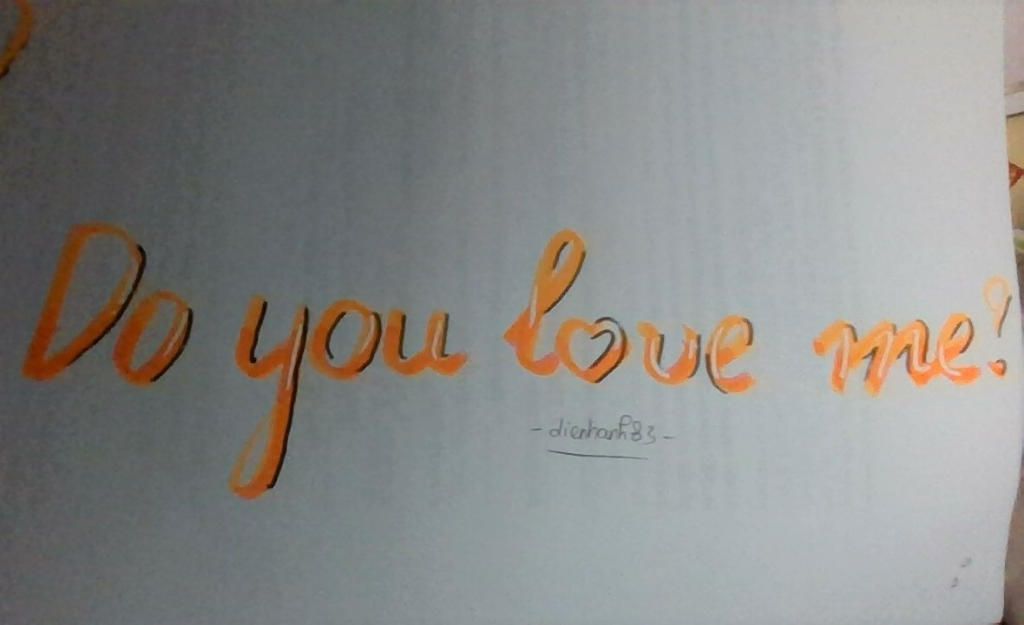 Do you love me?
- dienhanh83 -